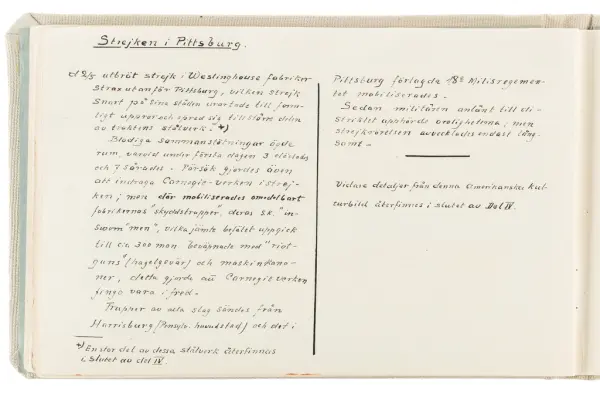 Strejken i Pittsburg.
d 2/5 utbröt strejk i Westinghouse fabriker
strax utanför Pittsburg, vilken strejk
snart på sina ställen urartade till farligt
uppror och spred sig till större delen
av traktens stålverk. *)
Blodiga sammanstötningar ägde
rum, varvid under första dagen 3 dödades
och 7 sårades. Försök gjordes även
att indraga Carnegie-verken i strej-
ken; men där mobiliserades omedelbart
fabrikernas "skyddstrupper", deras s.k. "in-
sworn men", vilka jämte befälet uppgick
till c:a 300 man beväpnade med "riot-
guns" (hagelgevär) och maskinkano-
ner, detta gjorde att Carnegieverken
fingo vara i fred.
Trupper av alla slag sändes från
Harrisburg (Pensylv. huvudstad) och det i
*) En stor del av dessa stålverk återfinnes
i slutet av del IV.
Pittsburg förlagda 18de Milisregemen-
tet mobiliserades.
Sedan militären anlänt till di-
striktet upphörde oroligheterna, men
strejkrörelsen avvecklades endast lång-
samt.
Vidare detaljer från denna Amerikanska kul-
turbild återfinnes i slutet av Del IV.